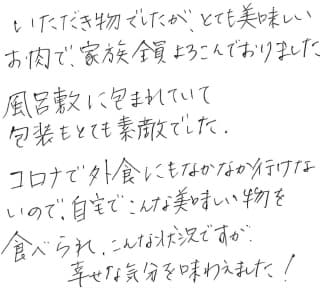 いただき物でしたが、とても美味しい
お肉で、家族全員よろこんでおりました
風呂敷に包まれていて
包装もとても素敵でした.
コロナで外食にもなかなか行けな
いので、自宅でこんな美味しい物を
食べられ、こんな状況ですが、
幸せな気分を味わえました!